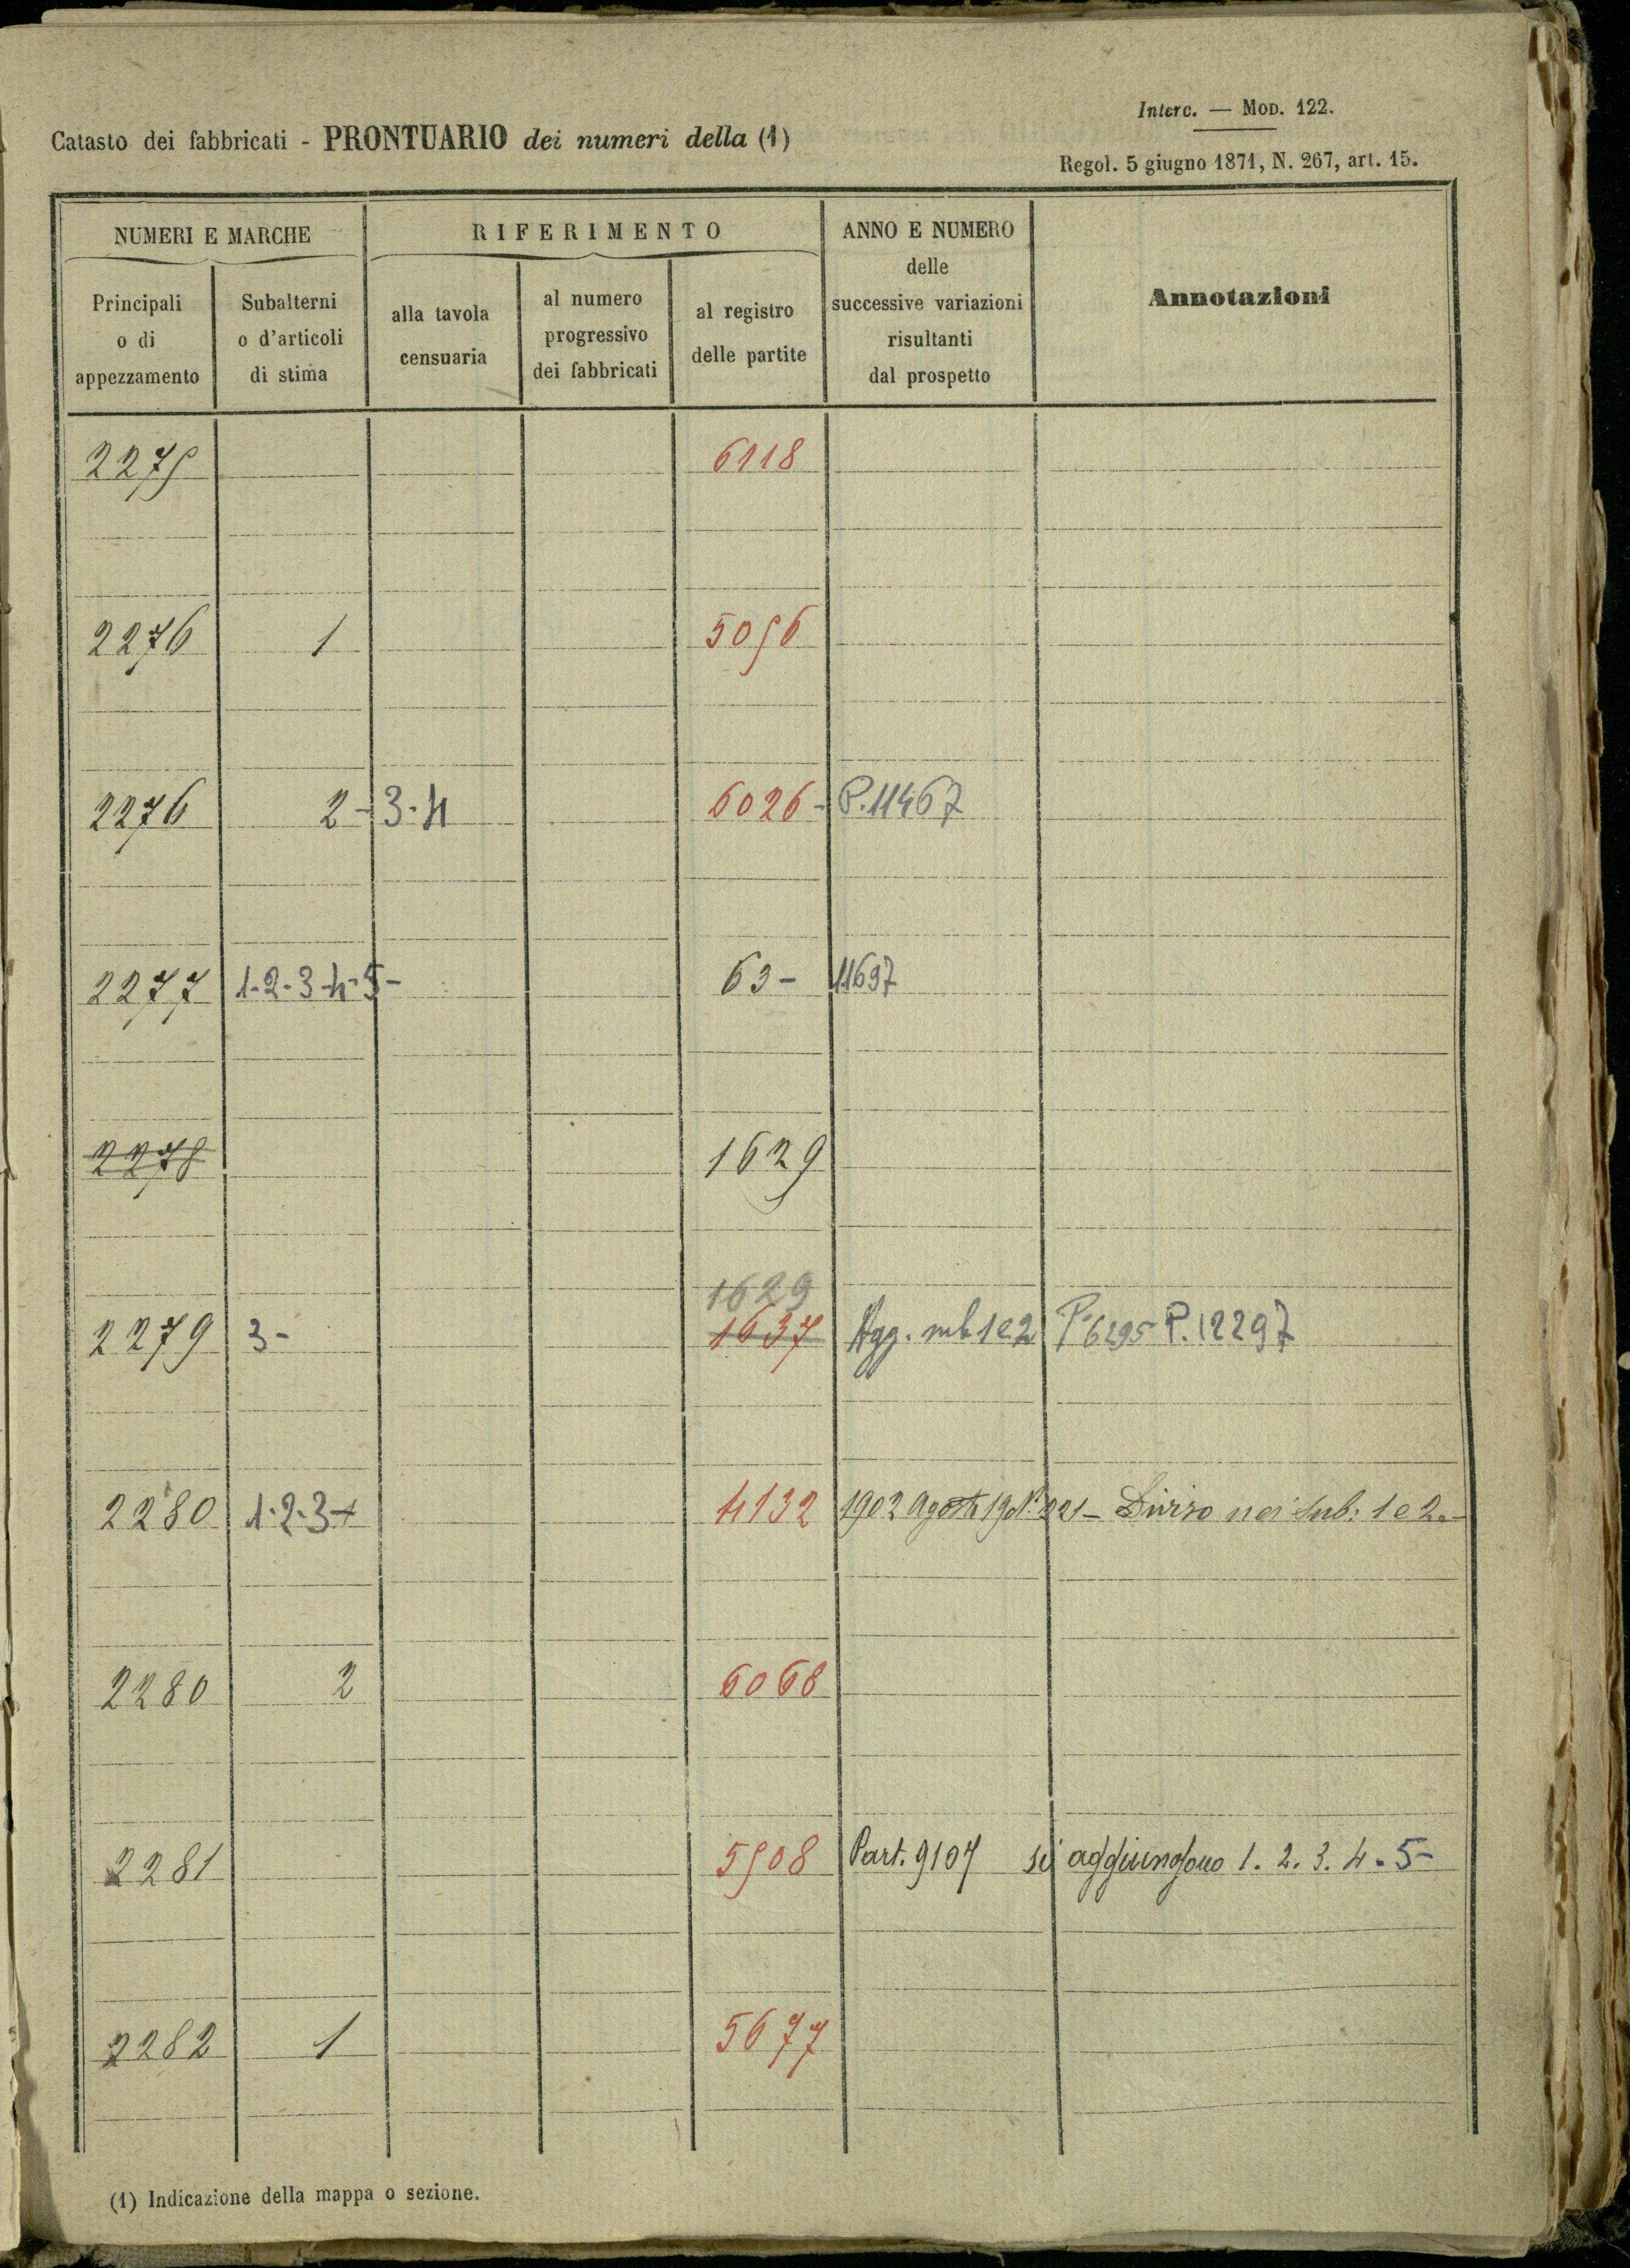 Interc. — MOD. 122.
Catasto dei fabbricati - PRONTUARIO dei numeri della (1)
Regol. 5 giugno 1871, N. 267, art. 15.
NUMERI E MARCHE
RIFERIMENTO
ANNO E NUMERO
delle
successive variazioni
risultanti
dal prospetto
Annotazioni
Principali
o di
appezzamento
Subalterni
o d'articoli
di stima
alla tavola
censuaria
al numero
progressivo
dei fabbricati
al registro
delle partite
2275 6118
2276 1 5056
2276 2-3-4 6026- P.11467
2277 1-2-3-4-5- 63- 11697
2278 1629
1629
2279 3- 1637 Agg. sub 1 e 2 P. 6295 P.12297
2280 1-2-3-+ 4132 1902 Agosto 19 N. 221 - Diviso nei Sub: 1 e 2.-
2280 2 6068
2281 5508 Part. 9107 si aggiungono 1. 2. 3. 4. 5-
2282 1 5677
(1) Indicazione della mappa o sezione.